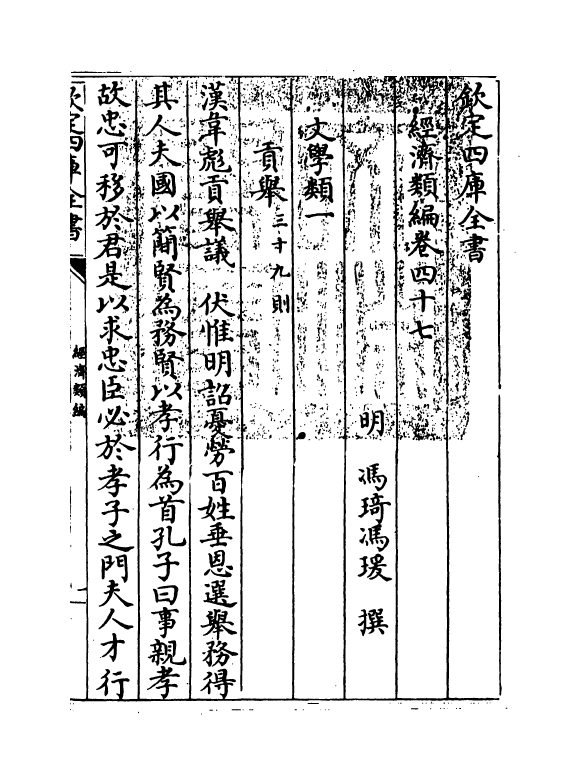 欽定四庫全書
經濟類編卷四十七
明　馮琦馮瑗　撰
文學類一
貢舉三十九則
漢韋彪貢舉議　伏惟明詔憂勞百姓垂恩選舉務得
其人夫國以簡賢為務賢以孝行為首孔子曰事親孝
故忠可移於君是以求忠臣必於孝子之門夫人才行
欽定四庫全書
經濟類編
一